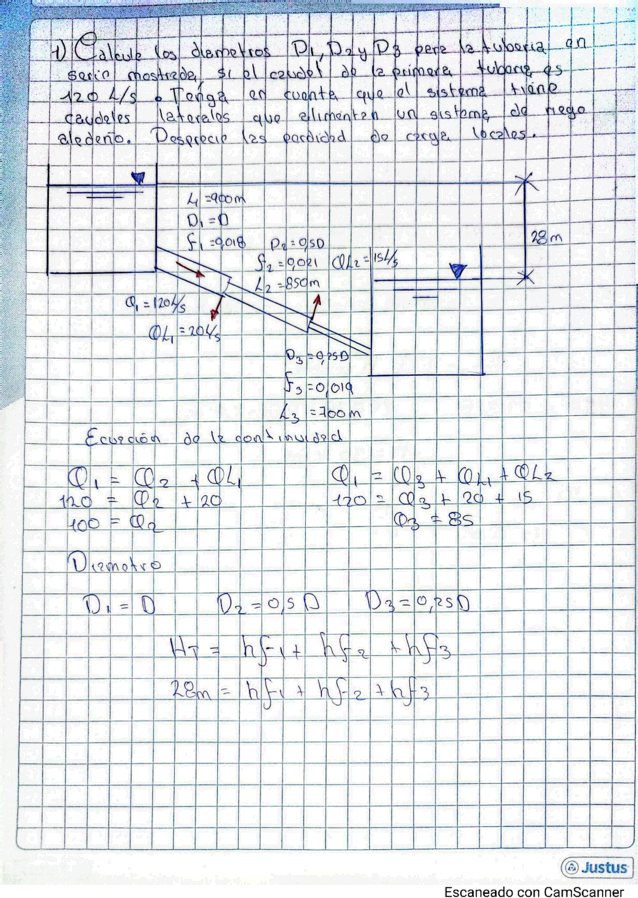 1) Calcule los diametros D1, D2 y D3 para la tuberia en
serie mostrada, si el caudal de la primera tuberia es
120 L/s. Tenga en cuenta que el sistema tiene
caudales laterales que alimentan un sistema de riego
aledeño. Desprecie las perdidad de carga locales.
L1 = 900m
D1 = D
f1 = 0,018
D2 = 0,5D
28m
f2 = 0,021 QL2 = 15L/s
L2 = 850m
Q1 = 120L/s
QL1 = 20L/s
D3 = 0,25D
f3 = 0,019
L3 = 700m
Ecuación de la continuidad
Q1 = Q2 + QL1 Q1 = Q3 + QL1 + QL2
120 = Q2 + 20 120 = Q3 + 20 + 15
100 = Q2 Q3 = 85
Diametro
D1 = D D2 = 0,5D D3 = 0,25D
HT = hf1 + hf2 + hf3
28m = hf1 + hf2 + hf3
Justus
Escaneado con CamScanner